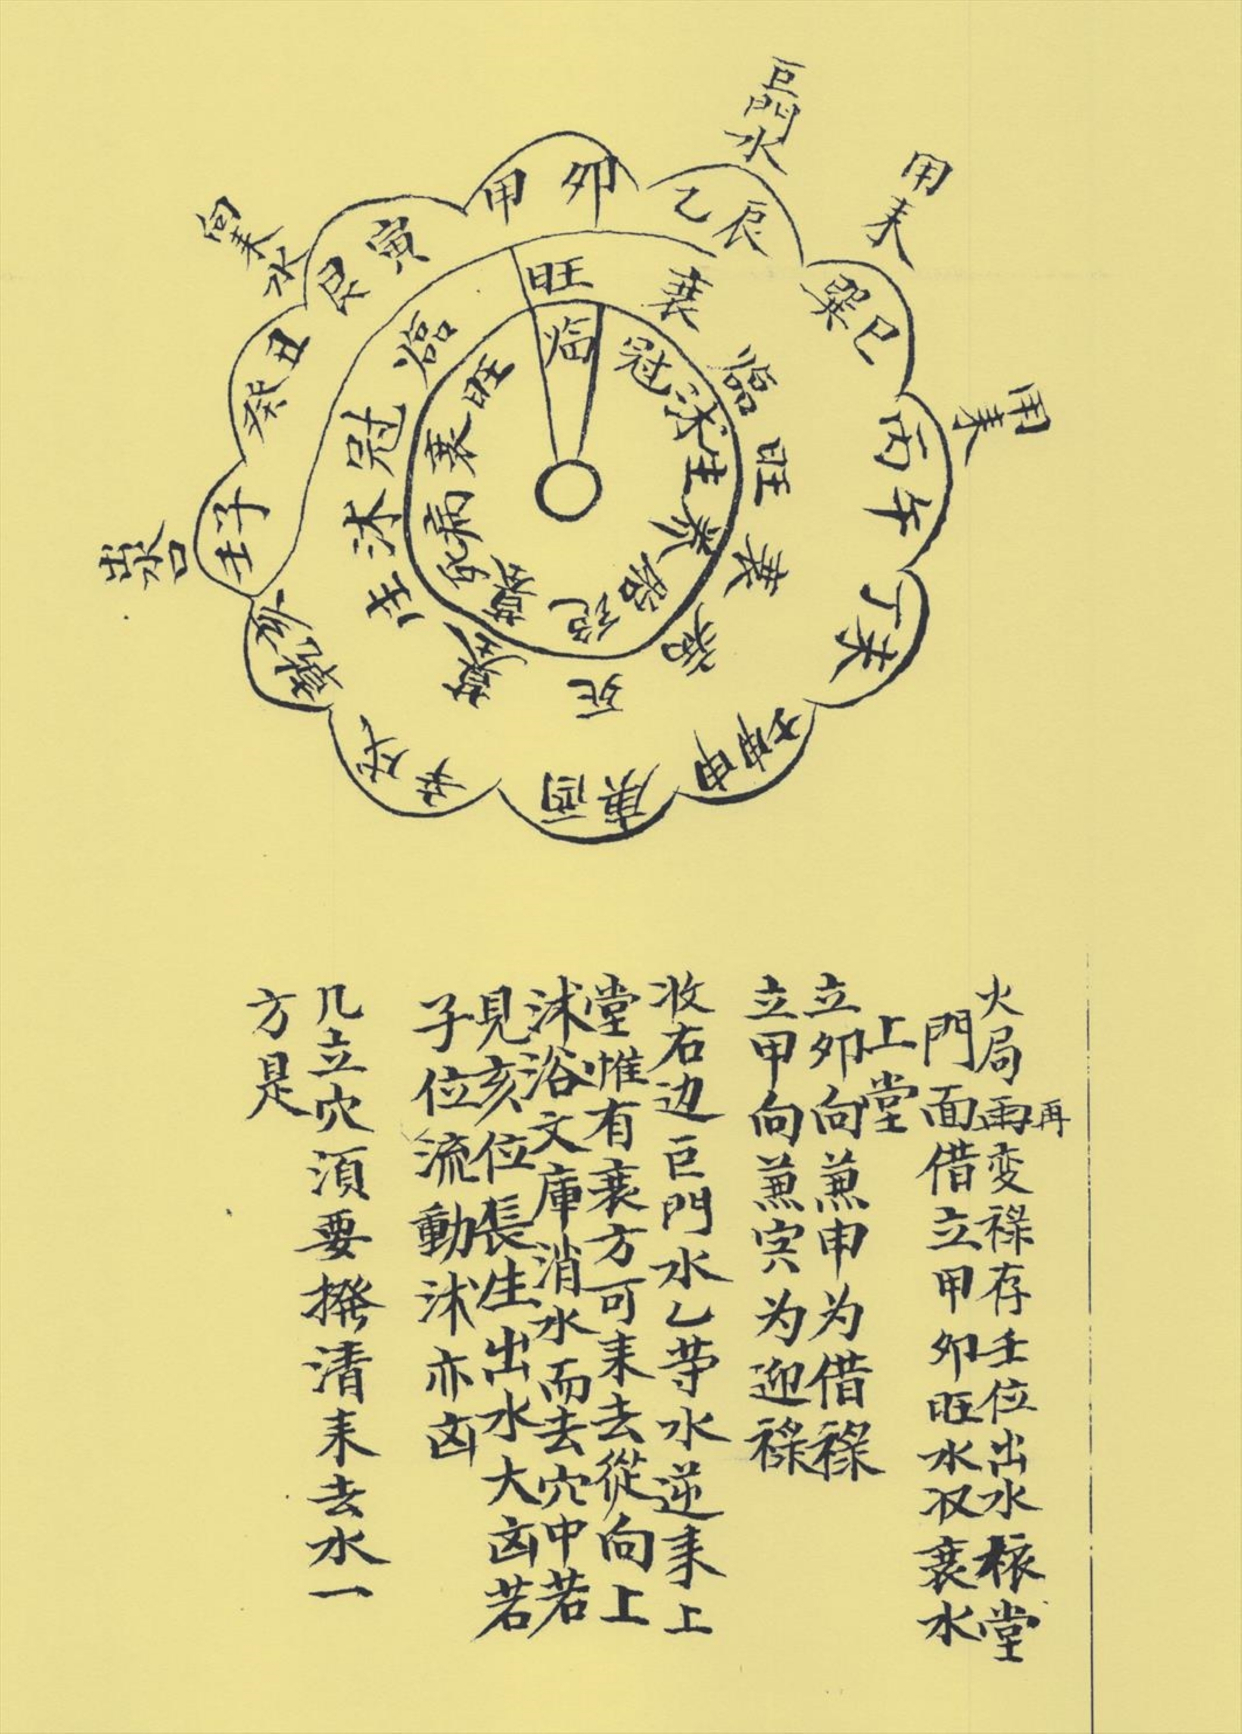 巨門水
用耒
用耒
向耒水
出水口
甲卯
乙辰
巽巳
丙午
丁未
坤申
庚酉
辛戌
乾亥
壬子
癸丑
艮寅
旺
衰
临
旺
衰
病
死
墓
生
沐
冠
临
临
冠
沐
生
养
胎
绝
墓
死
病
衰
旺
火局再変禄存壬位出水核堂
門面借立甲卯旺水収衰水
上堂
立卯向兼申为借禄
立甲向兼寅为迎禄
收右边巨門水乙等水逆耒上
堂惟有衰方可耒去從向上
沐浴文庫消水而去穴中若
見亥位長生出水大凶若
子位流動沐亦凶
凡立穴須要撥清耒去水一
方是